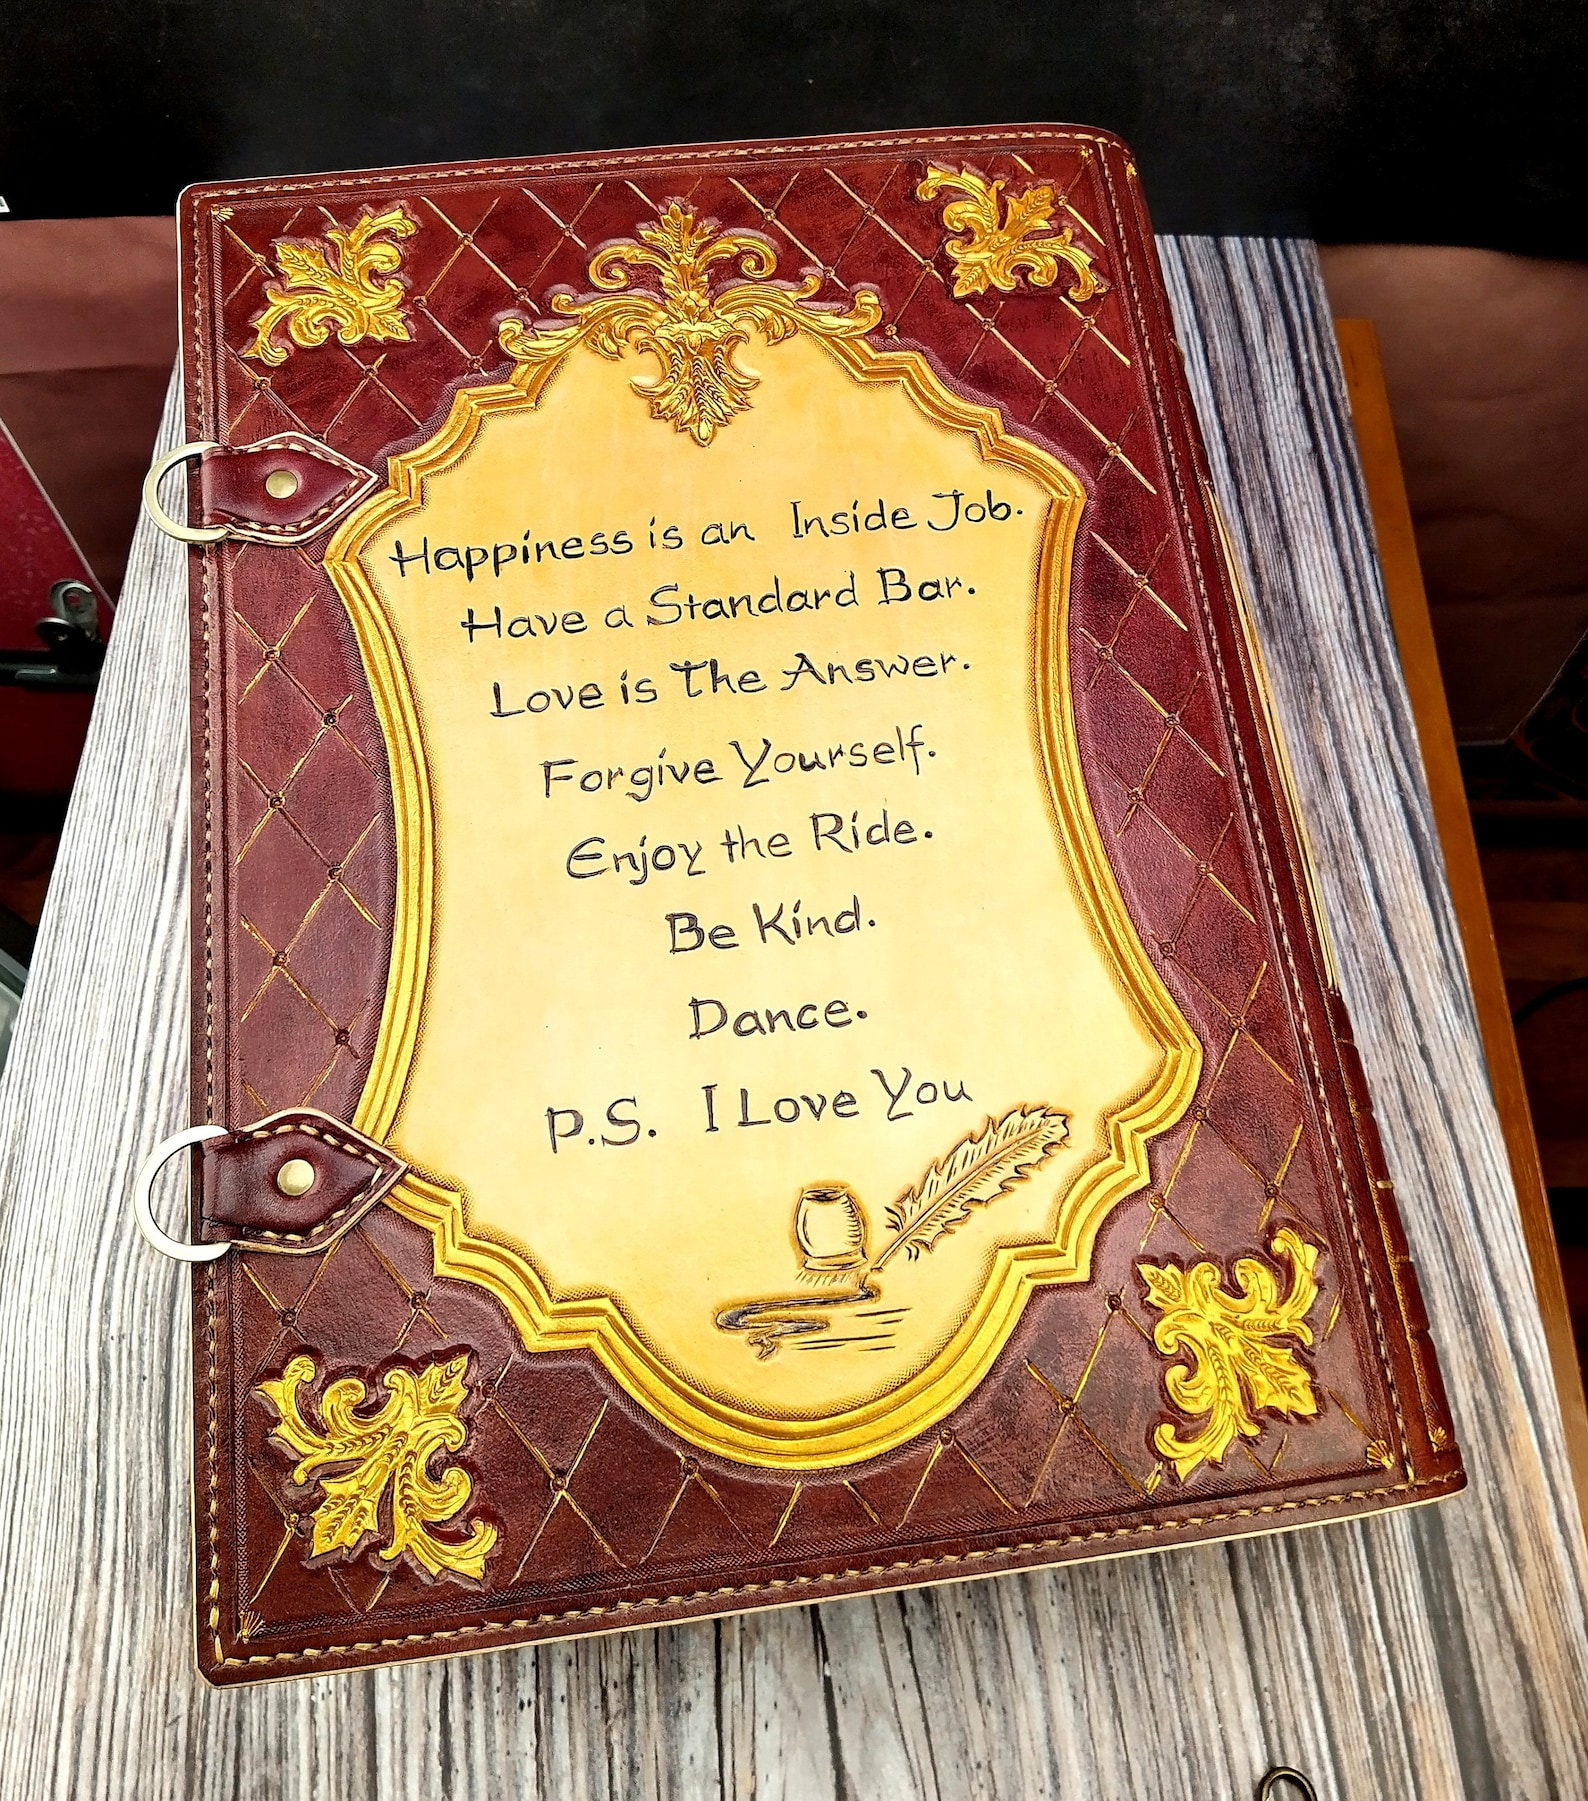 Happiness is an Inside Job.
Have a Standard Bar.
Love is The Answer.
Forgive Yourself.
Enjoy the Ride.
Be Kind.
Dance.
P.S. I Love You